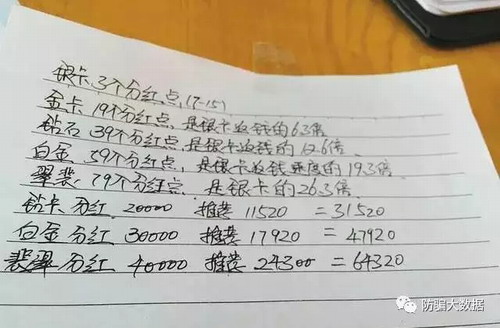 银卡3个分红点,(7-15)
金卡19个分红点,是银卡收钱的6.3倍
钻石39个分红点,是银卡收钱的12.6倍
白金、59个分红点,是银卡收钱速度的19.3倍
翠翡79个分红点 是银卡的26.3倍.
钻卡分红 20000 推荐11520 =31520
白金分红 30000 推荐17920 =47920
翡翠分红 40000 推荐24300=64320
防骗大数据